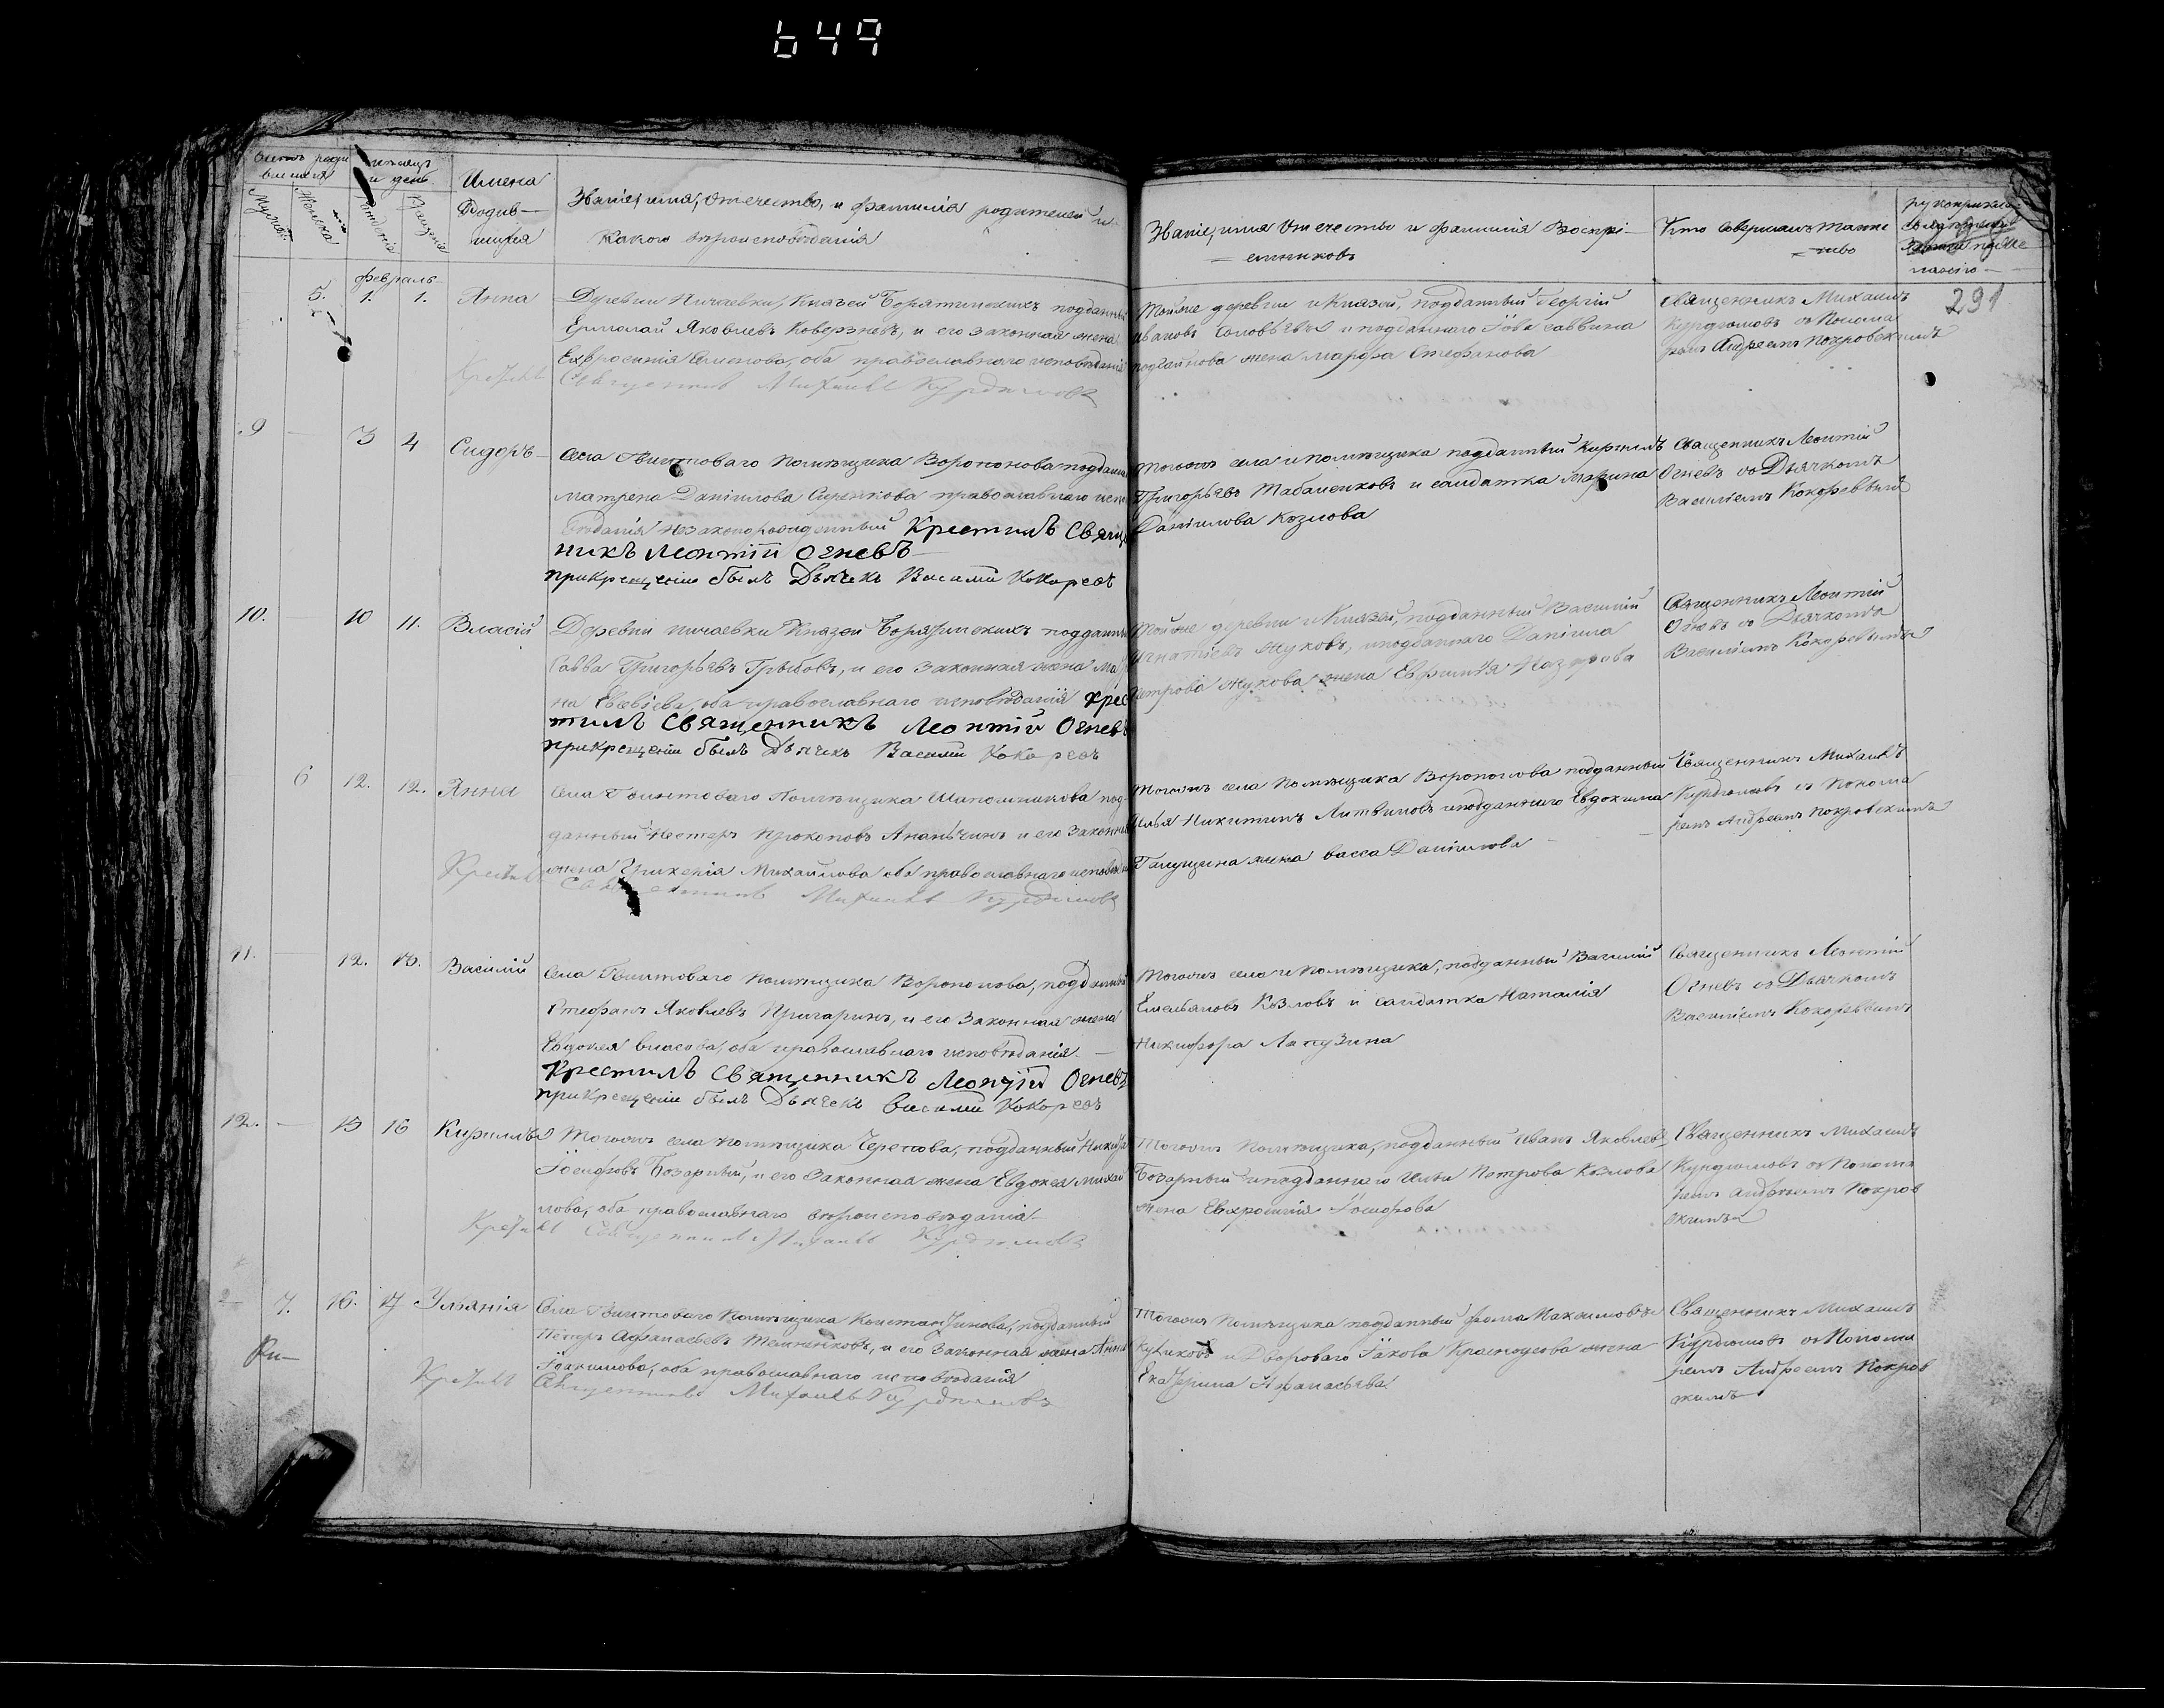 649
Счетъ роди
вшихся
мѣсяцъ
и день
Мужеска
Женска
Рожденія
Крещенія
Имена
Родив—
шихся
Званіе, имя, Отечество, и фамилія родителей и
Какого вѣроисповѣданія
Званіе, имя Отечество и фамилія Воспрі—
=емниковъ
Кто совершалъ таинс
=тво
рукоприкла
291
февраль
5. 1. 1. Анна
Деревни Ничаевки, Князей Борятинскихъ подданный
Ермолай Яковлевъ Коверзневъ, и его законная жена
Евфросинія Семенова, оба православнаго исповѣданія
Крестилъ Священникъ Михаилъ Курдюмовъ
Тойже деревни и Князей, подданный Георгій
Ивановъ Соловьевъ и подданнаго Іова Саввина
жена Марфа Стефанова
Священникъ Михаилъ
Курдюмовъ съ Понома
ремъ Андреемъ Покровскимъ
9 — 3 4 Сидоръ—
Села Помѣщика Воропонова подданная
Матрена Даніилова православнаго испо
вѣданія незаконорожденный Крестилъ Священ
никъ Леонтій Огневъ—
прикрещеніи былъ Дьячекъ Василій Кокоревъ
Тогожъ села и помѣщика подданный Кирилъ
Григорьевъ Табаченковъ и салдатка Марина
Даніилова Козлова
Священникъ Леонтій
Огневъ со Дьячкомъ
Василіемъ Кокоревымъ
10. 10 11. Власій
Деревни Ничаевки Князей Борятинскихъ подданный
Савва Григорьевъ Грыбовъ, и его Законная жена Мар
на Евсѣева, оба православнаго исповѣданія Крес
тилъ Священникъ Леонтій Огневъ
прикрещеніи былъ Дьячекъ Василій Кокоревъ
Тойже деревни и Князей, подданный Василій
Игнатіевъ Жуковъ, и подданнаго Даніила
Петрова Жукова жена Евфимія Назарова
Священникъ Леонтій
Огневъ со Дьячкомъ
Василіемъ Кокоревымъ
6 12. 12. Анна
Села Помѣщика Шапошникова под
данный Нестеръ Прокоповъ Ананьчинъ и его Законная
жена Михайлова оба православнаго исповѣданія
Крестилъ Священникъ Михаилъ Курдюмовъ
Тогожъ села Помѣщика Воропонова подданный
Илья Никитинъ Литвиновъ и подданнаго Евдокима
Галущина жена Васса Даніилова
Священникъ Михаилъ
Курдюмовъ съ Понома
ремъ Андреемъ Покровскимъ
11. — 12. 13. Василій
Села Помѣщика Воропонова, подданный
Стефанъ Яковлевъ Пригаринъ, и его Законная жена
Евдокея Власова, оба православнаго исповѣданія—
Крестилъ Священникъ Леонтій Огневъ
прикрещеніи былъ Дьячекъ Василій Кокоревъ
Тогожъ села и помѣщика, подданный Василій
Емельяновъ Козловъ и салдатка Наталія
Никифора Лапузина
Священникъ Леонтій
Огневъ со Дьячкомъ
Василіемъ Кокоревымъ
12. — 15 16 Кирилъ
Тогожъ села помѣщика Черепова, подданный
Іосифовъ Бозарный, и его Законная жена Евдокея Михай
лова, оба православнаго вѣроисповѣданія—
Крестилъ Священникъ Михаилъ Курдюмовъ
Тогожъ Помѣщика, подданный Иванъ Яковлевъ
Бозарный и подданнаго Ильи Петрова Козлова
жена Евфросинія Іосифова
Священникъ Михаилъ
Курдюмовъ съ Понома
ремъ Андреемъ Покров
скимъ
7. 16. 17 Ульянія
Села Помѣщика Константинова, подданный
Петръ Афанасьевъ и его Законная жена Анна
Іоакимова, оба православнаго исповѣданія
Крестилъ Священникъ Михаилъ Курдюмовъ
Тогожъ Помѣщика подданный Фома Максимовъ
Куликовъ и Двороваго Іакова жена
Екатерина Афанасьева
Священникъ Михаилъ
Курдюмовъ съ Понома
ремъ Андреемъ Покров
скимъ